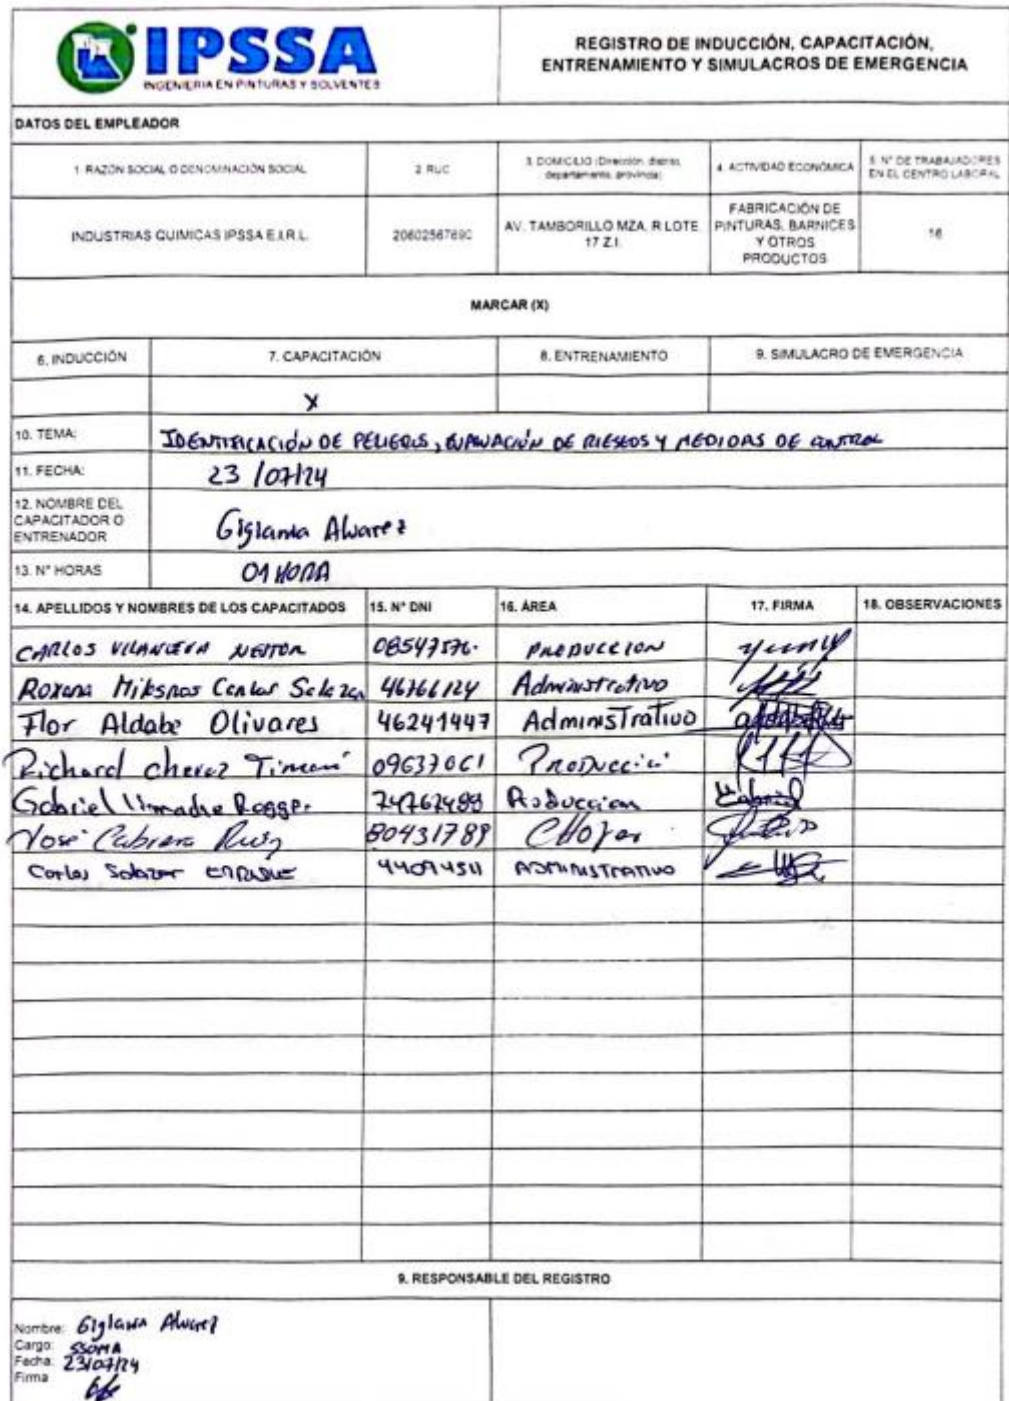 IPSSA
INGENIERIA EN PINTURAS Y SOLVENTES
REGISTRO DE INDUCCIÓN, CAPACITACIÓN,
ENTRENAMIENTO Y SIMULACROS DE EMERGENCIA
DATOS DEL EMPLEADOR
1. RAZÓN SOCIAL O DENOMINACIÓN SOCIAL
2. RUC
3. DOMICILIO (Dirección, distrito,
departamento, provincia)
4. ACTIVIDAD ECONÓMICA
5. N° DE TRABAJADORES
EN EL CENTRO LABORAL
INDUSTRIAS QUIMICAS IPSSA E.I.R.L.
AV. TAMBORILLO MZA. R LOTE
17 Z.I.
FABRICACIÓN DE
PINTURAS, BARNICES
Y OTROS
PRODUCTOS
16
MARCAR (X)
6. INDUCCIÓN
7. CAPACITACIÓN
8. ENTRENAMIENTO
9. SIMULACRO DE EMERGENCIA
X
10. TEMA: IDENTIFICACIÓN DE PELIGROS, EVALUACIÓN DE RIESGOS Y MEDIDAS DE CONTROL
11. FECHA: 23/07/24
12. NOMBRE DEL
CAPACITADOR O
ENTRENADOR
Giglania Alvarez
13. N° HORAS 01 HORA
14. APELLIDOS Y NOMBRES DE LOS CAPACITADOS 15. N° DNI 16. ÁREA 17. FIRMA 18. OBSERVACIONES
CARLOS VILANUEVA NESTOR PRODUCCION
Roxana Carlos Salazar 46766124 Administrativo
Flor Aldabe Olivares 46241447 Administrativo
Richard cherez 09637061 Producción
Gabriel 74762499 Produccion
José Cabrera Ruiz 80431789 CHOFER
Carlos Salazar ENRIQUE 44094511 ADMINISTRATIVO
9. RESPONSABLE DEL REGISTRO
Nombre: Giglania Alvarez
Cargo: SSOMA
Fecha: 23/07/24
Firma